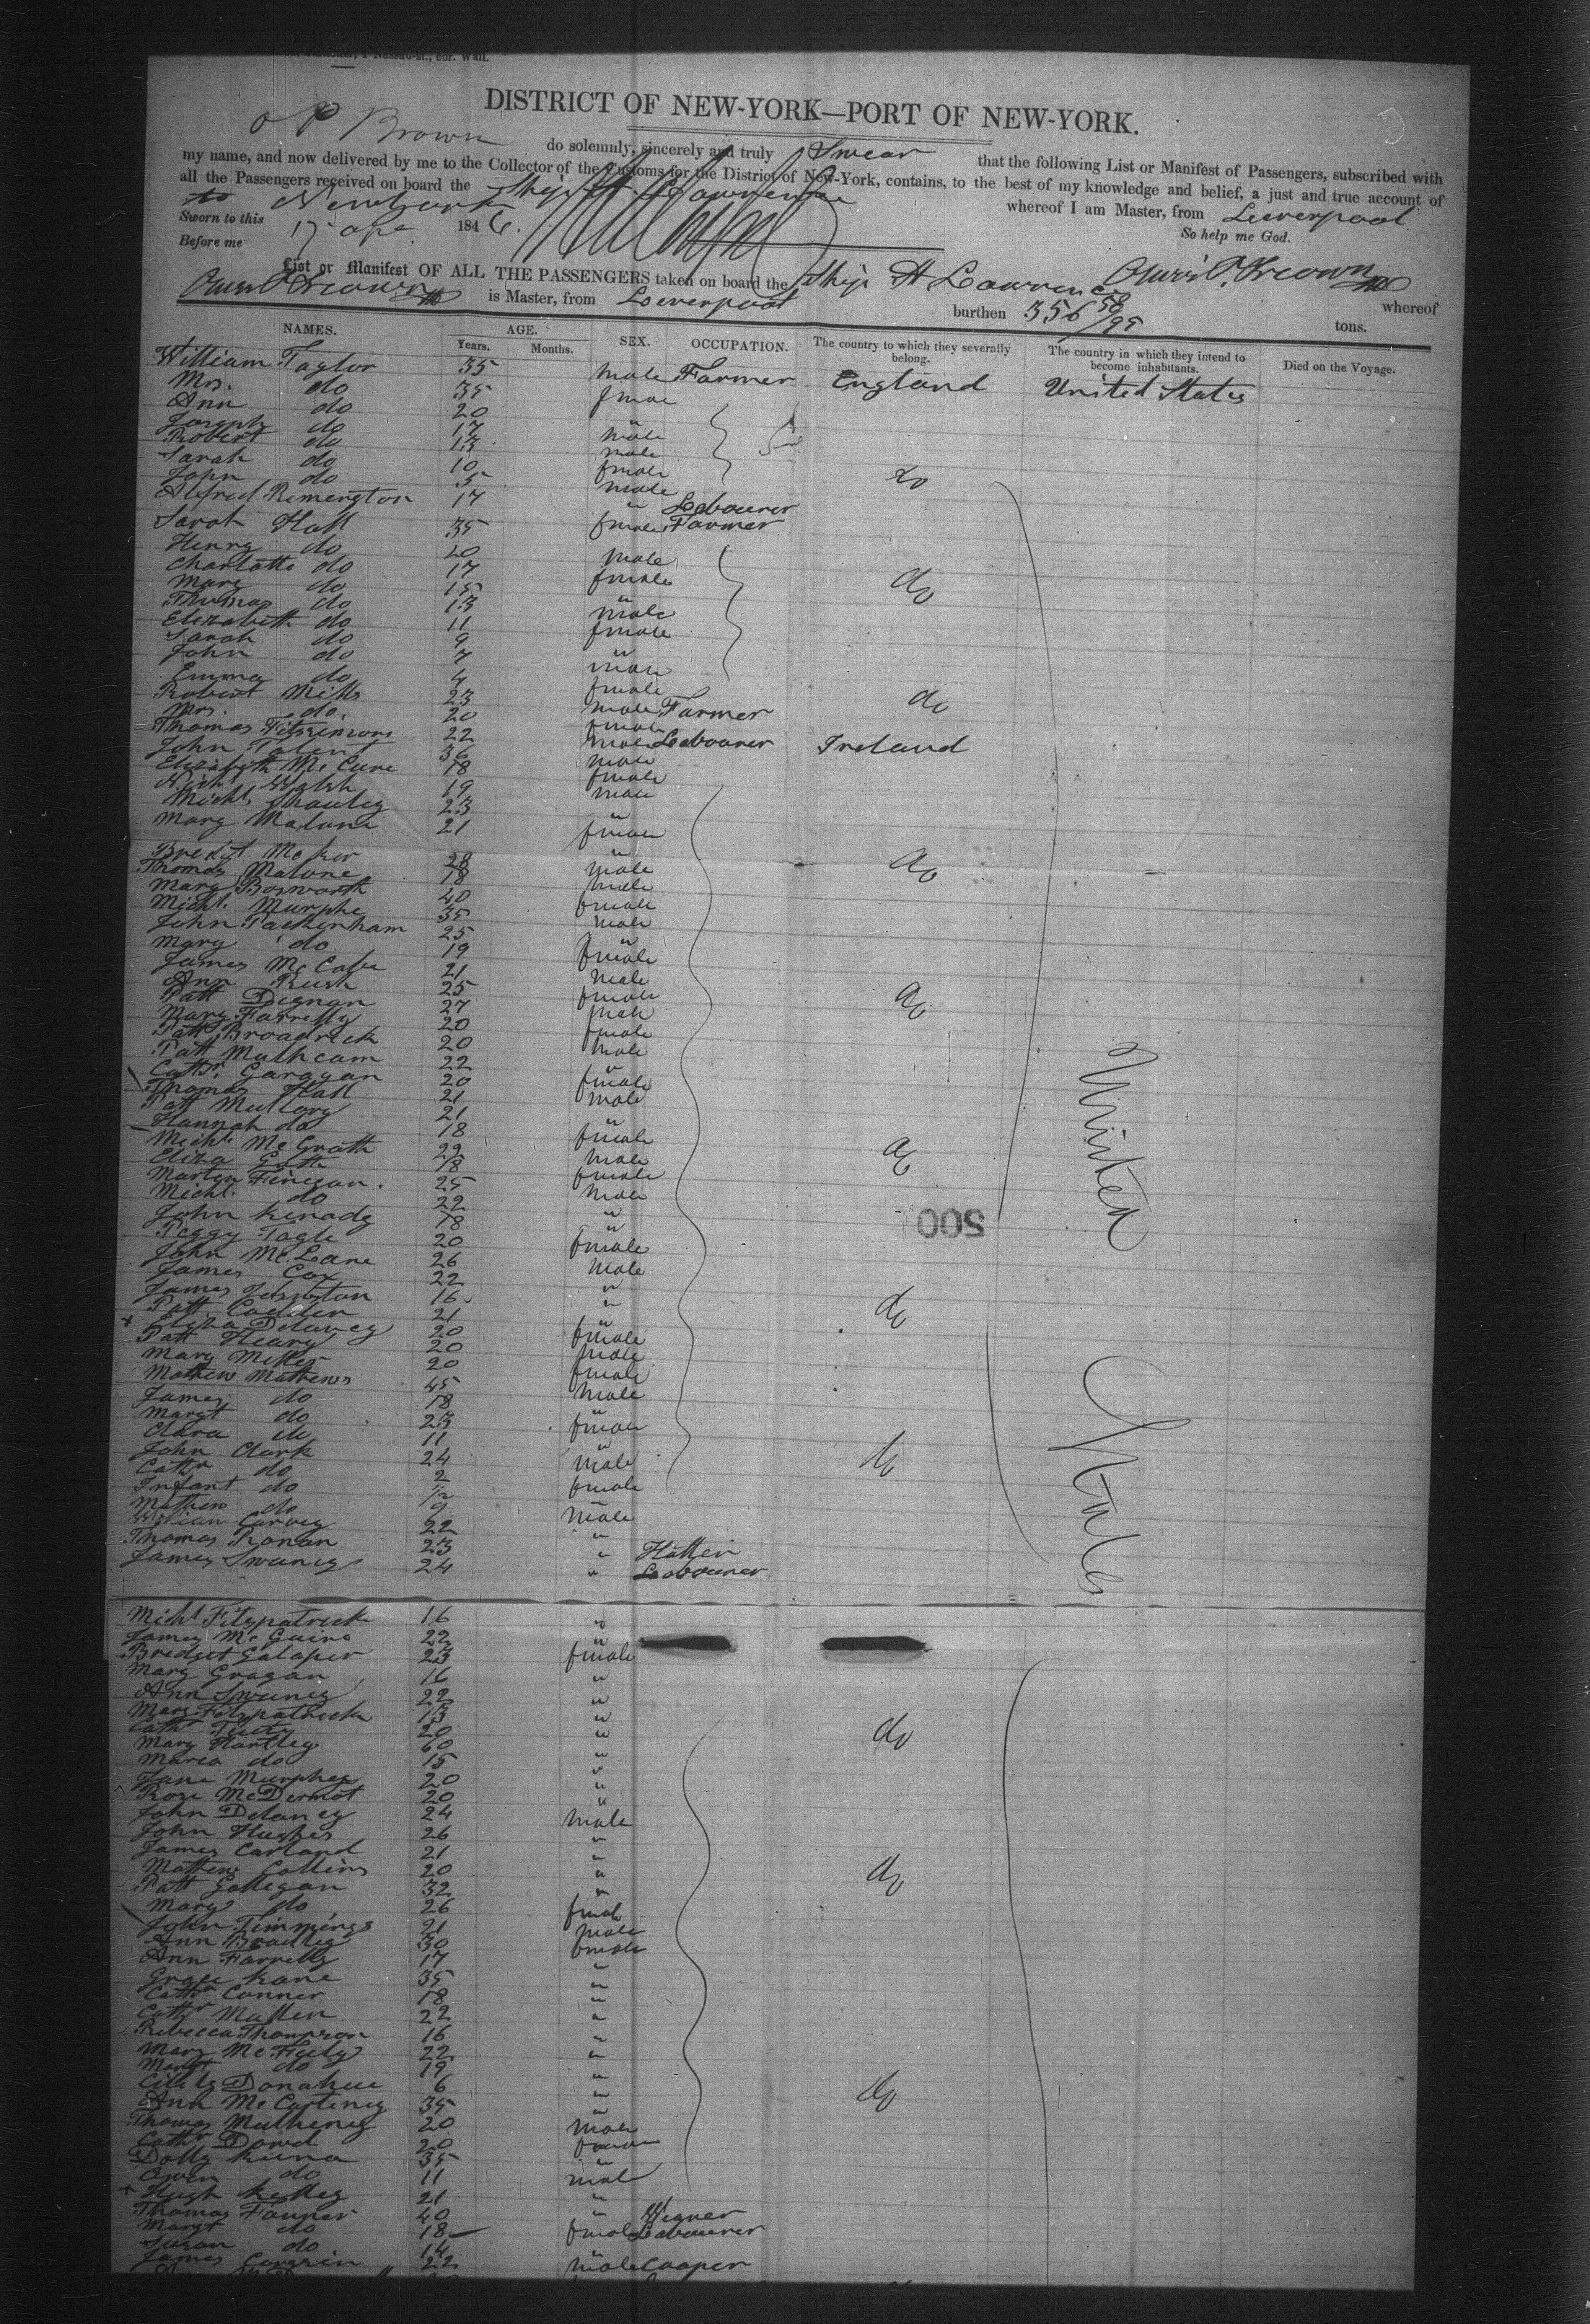 DISTRICT OF NEW-YORK—PORT OF NEW-YORK.
O P Brown do solemnly, sincerely and truly Swear that the following List or Manifest of Passengers, subscribed with
my name, and now delivered by me to the Collector of the Customs for the District of New-York, contains, to the best of my knowledge and belief, a just and true account of
all the Passengers received on board the Ship whereof I am Master, from Liverpool
to Newyork
Sworn to this 17 1846. So help me God.
Before me
List or Manifest OF ALL THE PASSENGERS taken on board the Ship whereof
is Master, from Liverpool burthen 356 58/95 tons.
NAMES. AGE. Years. Months. SEX. OCCUPATION. The country to which they severally belong. The country in which they intend to become inhabitants. Died on the Voyage.
William Taylor 35 male Farmer England United States
Mrs. do 35
Ann do 20 "
Joseph do 17 male
Robert do 13 male
Sarah do 10 fmale
John do 5 male do
Alfred Remengton 17 " Labourer
Sarah Hall 35 fmale Farmer
Henry do 20 male
Charlotte do 17 fmale
Mary do 15 " do
Thomas do 13 male
Elizabeth do 11 fmale
Sarah do 9 "
John do 7 male
Emma do 4 fmale
Robert Mills 23 male Farmer do
Mrs. do. 20 fmale
Thomas Fitzsimons 22 male Labourer Ireland
John 36 male
Elizabeth 18 fmale
Walsh 19 male
Michl. 23 "
Mary Malone 21 fmale
28 " do
Thomas Malone 18 male
Mary Bosworth 40 fmale
Michl. Murphe 35 male
John Packenham 25 "
Mary do 19 fmale
James McCabe 21 male
Ann Rush 25 fmale
Patt Dignan 27 male do
Mary Farrelly 20 fmale
Patt Broadrick 20 male
Patt 22 "
Cathr. Garagan 20 fmale
Thomas Hall 21 male
Patt 21 "
Hannah do 18 fmale
Michl. McGrath 22 male
Eliza 18 fmale do
Marten Finegan. 25 male
Michl. do 22 "
John Kenady 18 "
Peggy 20 fmale
John McLane 26 male
James Cox 22 "
James Johnston 16 "
Patt 21 " do
Delaney 20 fmale
Patt Heary 20 male
Mary Miller 20 fmale
Mathew Mathews 45 male
James do 18 "
Margt do 23 fmale
Clara do 11 "
John Clark 24 male
Cathr do 2 fmale do
Infant do 1/2 "
Mathew do 9 male
22 "
Thomas Ronan 23 "
James Swaney 24 " Labourer
500
United States
Michl Fitzpatrick 16 "
James McGuire 22 "
Bredget 23 fmale
Mary Gragan 16 "
Ann Swaney 22 "
Mary Fitzpatrick 13 "
Cathr 20 " do
Mary Hartley 60 "
Maria do 15 "
Jane Murphey 20 "
Rose McDermot 20 "
John Delaney 24 male
John Hughes 26 "
James Carland 21 "
Mathew Collins 20 " do
Patt Gallegan 32 "
Mary do 26 fmale
John Timmings 21 male
Ann Bradley 30 fmale
Ann Farrelly 17 "
Grace Kane 35 "
Cathr Conner 18 "
Cathr Mallen 22 "
Rebecca Thompson 16 "
Mary 22 "
Margt do 19 "
Donahue 6 " do
Ann McCarteney 35 "
Thomas 20 male
Cathr Dowd 20 fmale
Dolly 35 "
Owen do 11 male
Hugh Kelley 21 "
Thomas 40 "
Margt do 18 fmale Labourer
Susan do 14 "
James 22 male Cooper